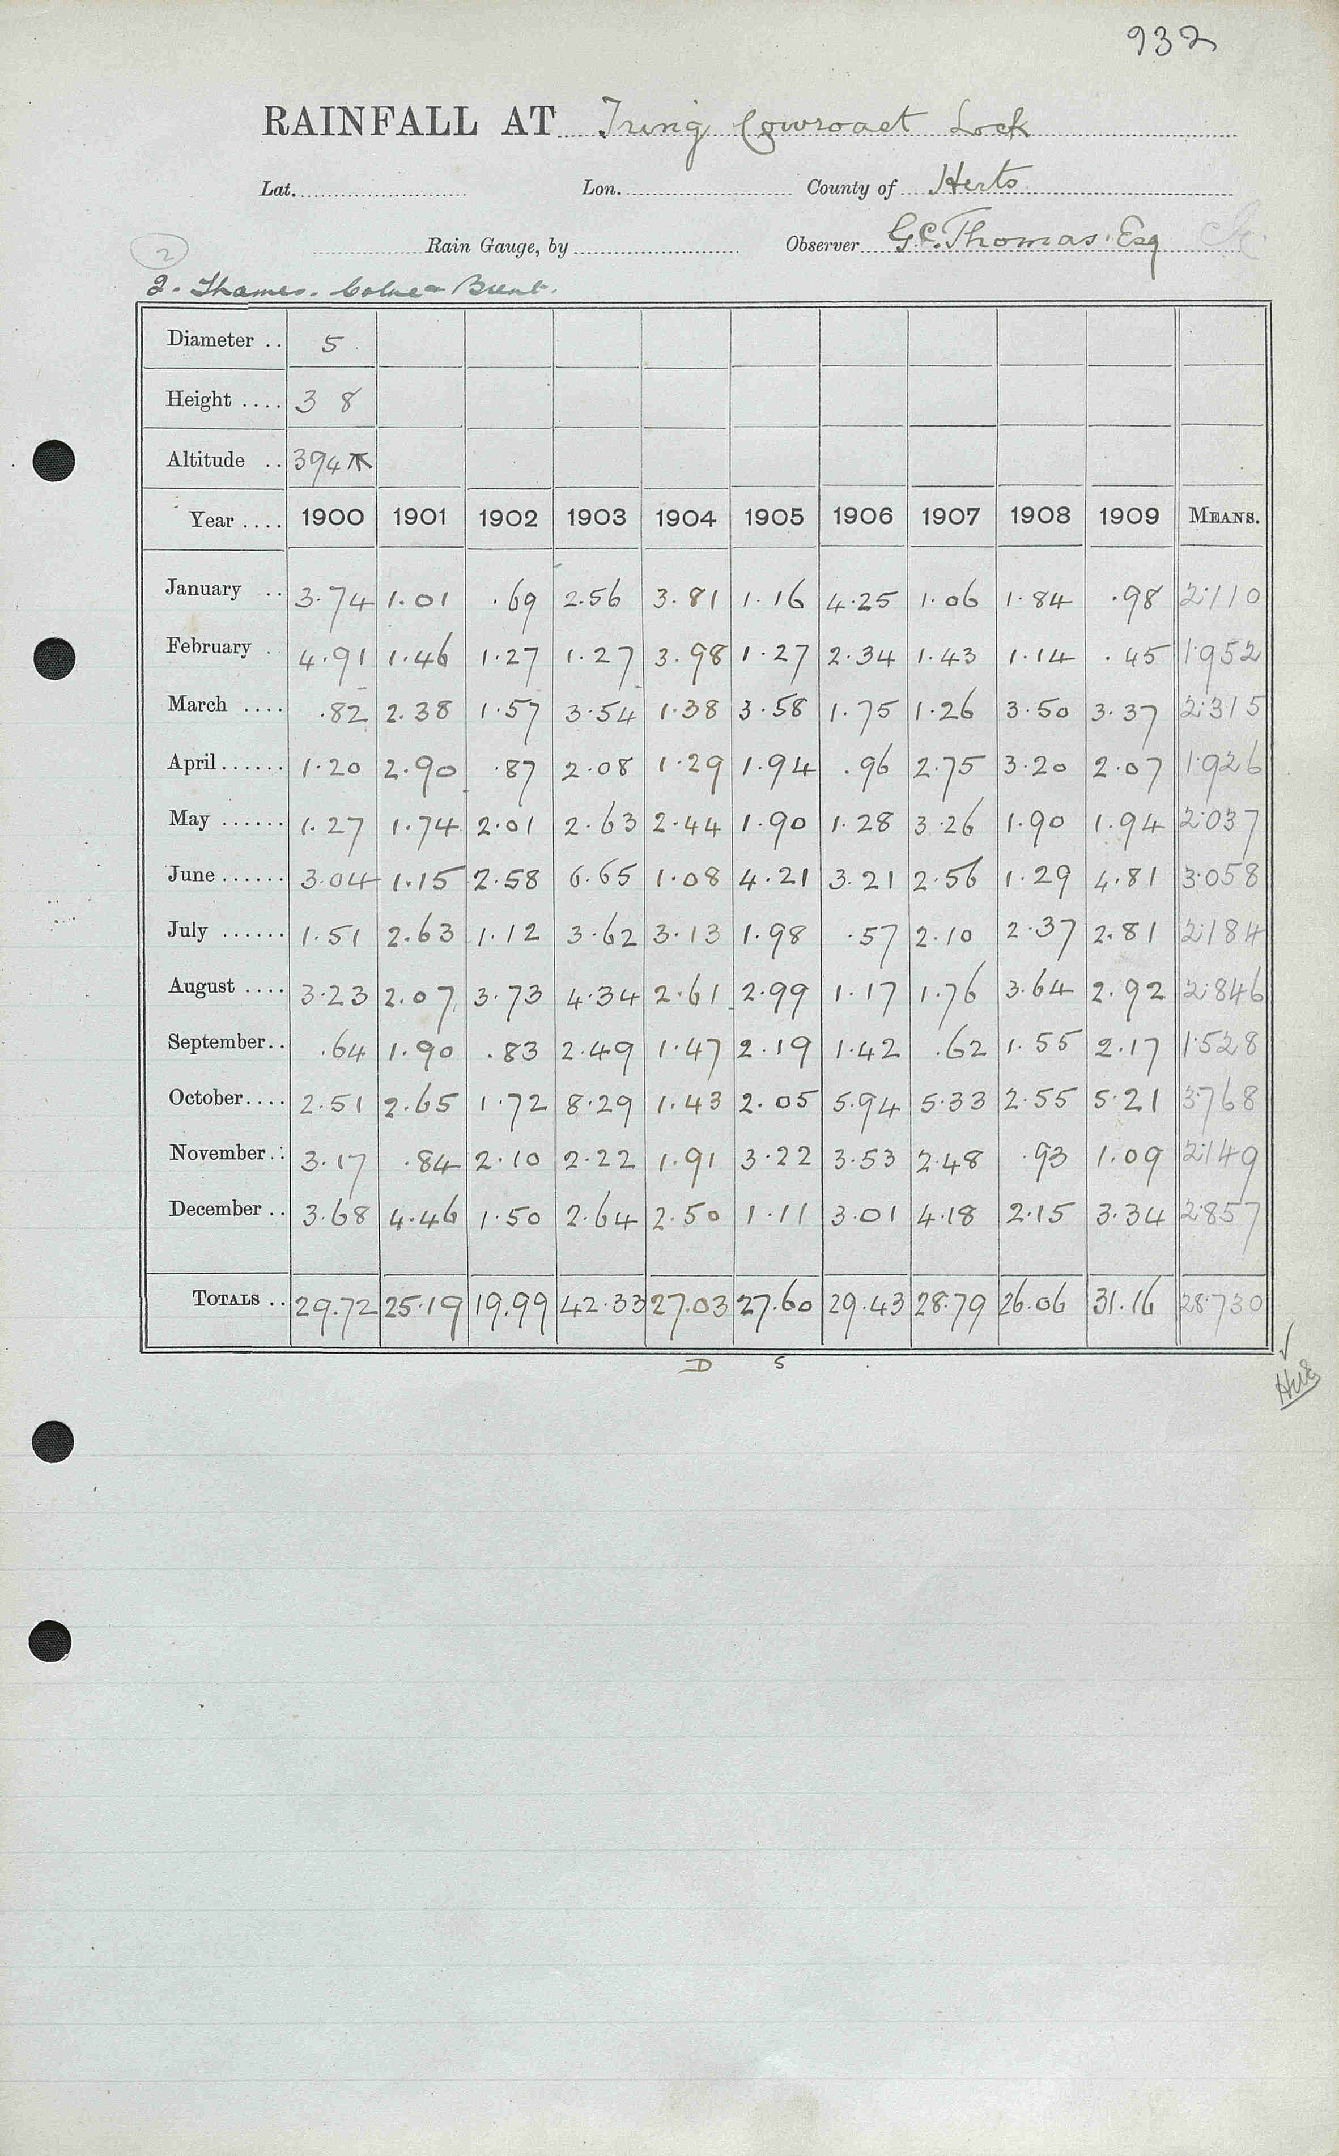 932
RAINFALL AT Tring Cowroast Lock
Lat. Lon. County of Herts
Rain Gauge, by Observer G.C. Thomas Esq
2
2. Thames. Colne & Brent.
Diameter .. 5
Height .... 3 8
Altitude .. 394
Year .... 1900 1901 1902 1903 1904 1905 1906 1907 1908 1909 MEANS.
January .. 3.74 1.01 .69 2.56 3.81 1.16 4.25 1.06 1.84 .98 2.110
February . 4.91 1.46 1.27 1.27 3.98 1.27 2.34 1.43 1.14 .45 1.952
March .... .82 2.38 1.57 3.54 1.38 3.58 1.75 1.26 3.50 3.37 2.315
April...... 1.20 2.90 .87 2.08 1.29 1.94 .96 2.75 3.20 2.07 1.926
May ...... 1.27 1.74 2.01 2.63 2.44 1.90 1.28 3.26 1.90 1.94 2.037
June...... 3.04 1.15 2.58 6.65 1.08 4.21 3.21 2.56 1.29 4.81 3.058
July ...... 1.51 2.63 1.12 3.62 3.13 1.98 .57 2.10 2.37 2.81 2.184
August .... 3.23 2.07 3.73 4.34 2.61 2.99 1.17 1.76 3.64 2.92 2.846
September.. .64 1.90 .83 2.49 1.47 2.19 1.42 .62 1.55 2.17 1.528
October.... 2.51 2.65 1.72 8.29 1.43 2.05 5.94 5.33 2.55 5.21 3.768
November.. 3.17 .84 2.10 2.22 1.91 3.22 3.53 2.48 .93 1.09 2.149
December .. 3.68 4.46 1.50 2.64 2.50 1.11 3.01 4.18 2.15 3.34 2.857
TOTALS .. 29.72 25.19 19.99 42.33 27.03 27.60 29.43 28.79 26.06 31.16 28.730
D S